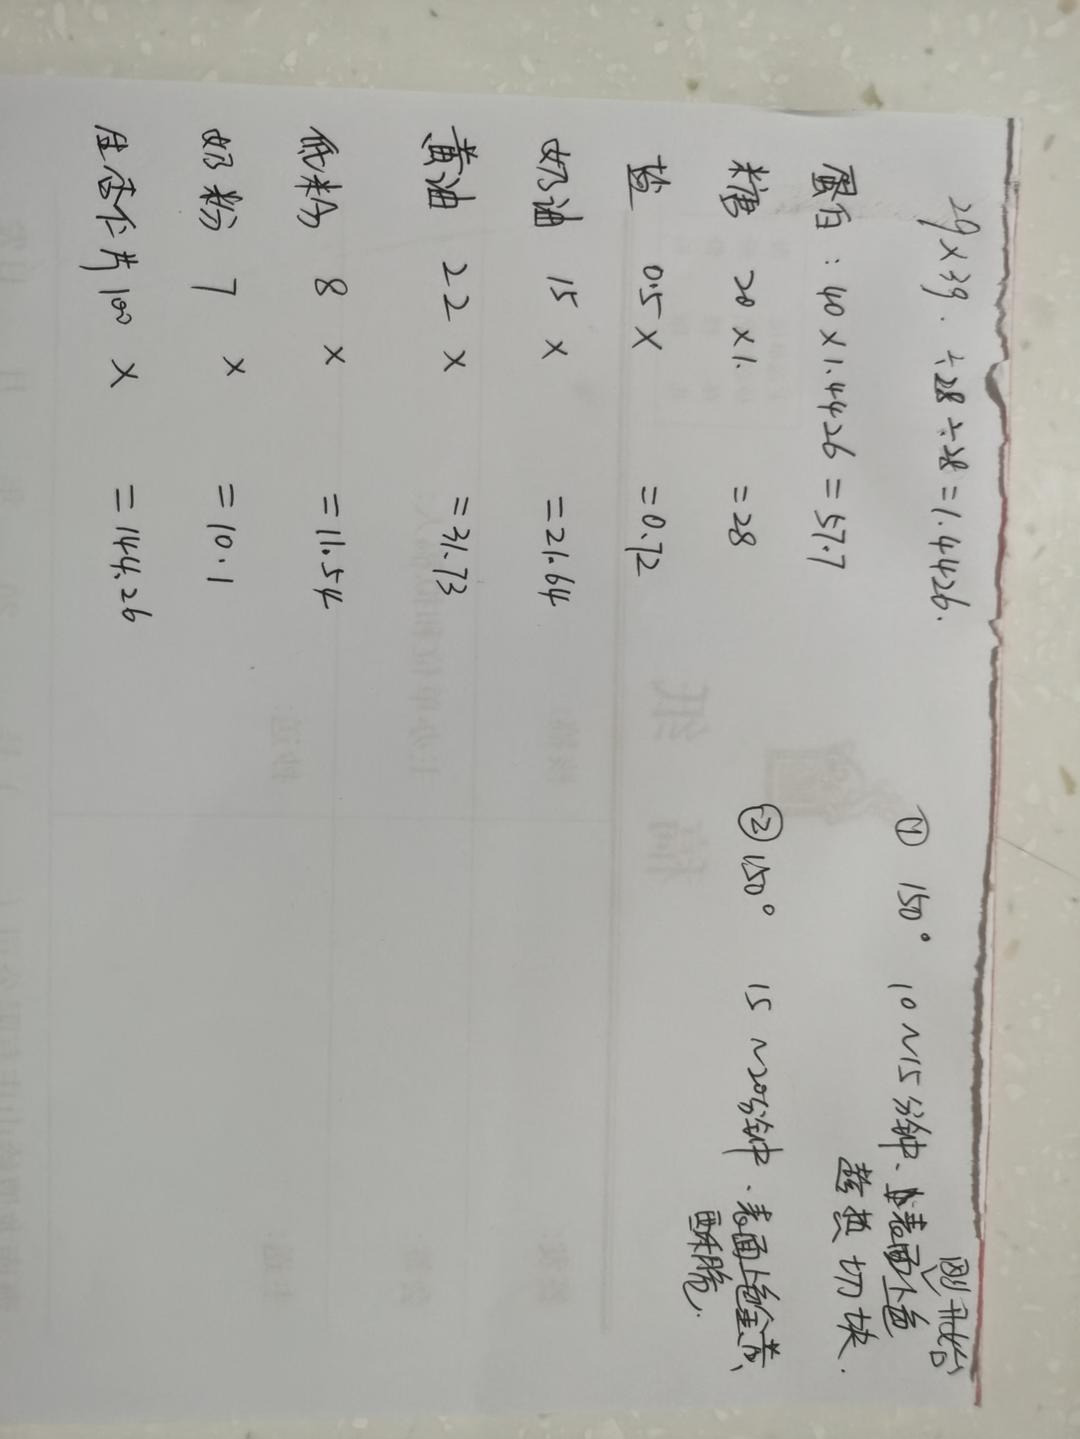 29×39.÷28÷28=1.4426.
蛋白:40×1.4426=57.7
糖 20×1. =28
盐 0.5× =0.72
奶油 15× =21.64
黄油 22× =31.73
低粉 8× =11.54
奶粉 7× =10.1
生杏仁片100× =144.26
① 150° 10~15分钟、表面刚开始上色
趁热切块.
② 150° 15~20分钟、表面上色金黄、
酥脆.